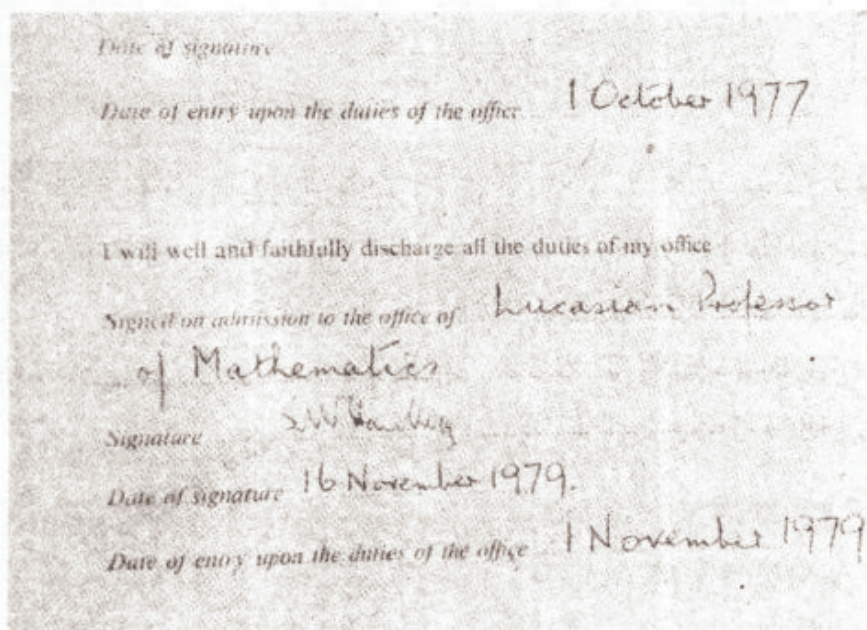 Date of signature
Date of entry upon the duties of the office 1 October 1977
I will well and faithfully discharge all the duties of my office
Signed on admission to the office of Lucasian Professor
of Mathematics
Signature S.W. Hawking
Date of signature 16 November 1979.
Date of entry upon the duties of the office 1 November 1979